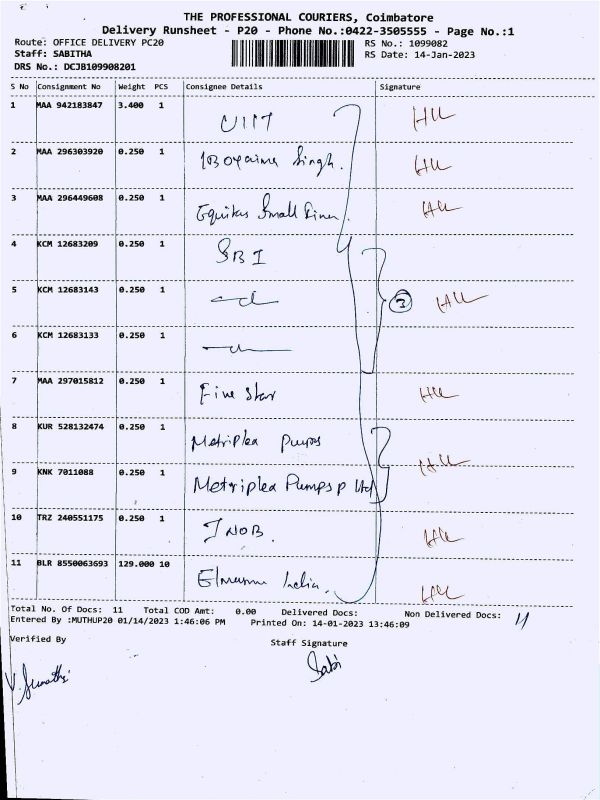 THE PROFESSIONAL COURIERS, Coimbatore
Delivery Runsheet - P20 - Phone No.:0422-3505555 - Page No.:1
Route: OFFICE DELIVERY PC20 RS No.: 1099082
Staff: SABITHA RS Date: 14-Jan-2023
DRS No.: DCJB109908201
S No Consignment No Weight PCS Consignee Details Signature
1 MAA 942183847 3.400 1
2 MAA 296303920 0.250 1 Singh.
3 MAA 296449608 0.250 1 Equitas Small Finan
4 KCM 12683209 0.250 1 SBI
5 KCM 12683143 0.250 1 3
6 KCM 12683133 0.250 1
7 MAA 297015812 0.250 1 Five Star
8 KUR 528132474 0.250 1 Metriplex Pumps
9 KNK 7011088 0.250 1 Metriplex Pumps P Ltd
10 TRZ 240551175 0.250 1 INOB.
11 BLR 8550063693 129.000 10 India.
Total No. Of Docs: 11 Total COD Amt: 0.00 Delivered Docs: Non Delivered Docs: 11
Entered By :MUTHUP20 01/14/2023 1:46:06 PM Printed On: 14-01-2023 13:46:09
Verified By Staff Signature
V. Sumathi Sabi